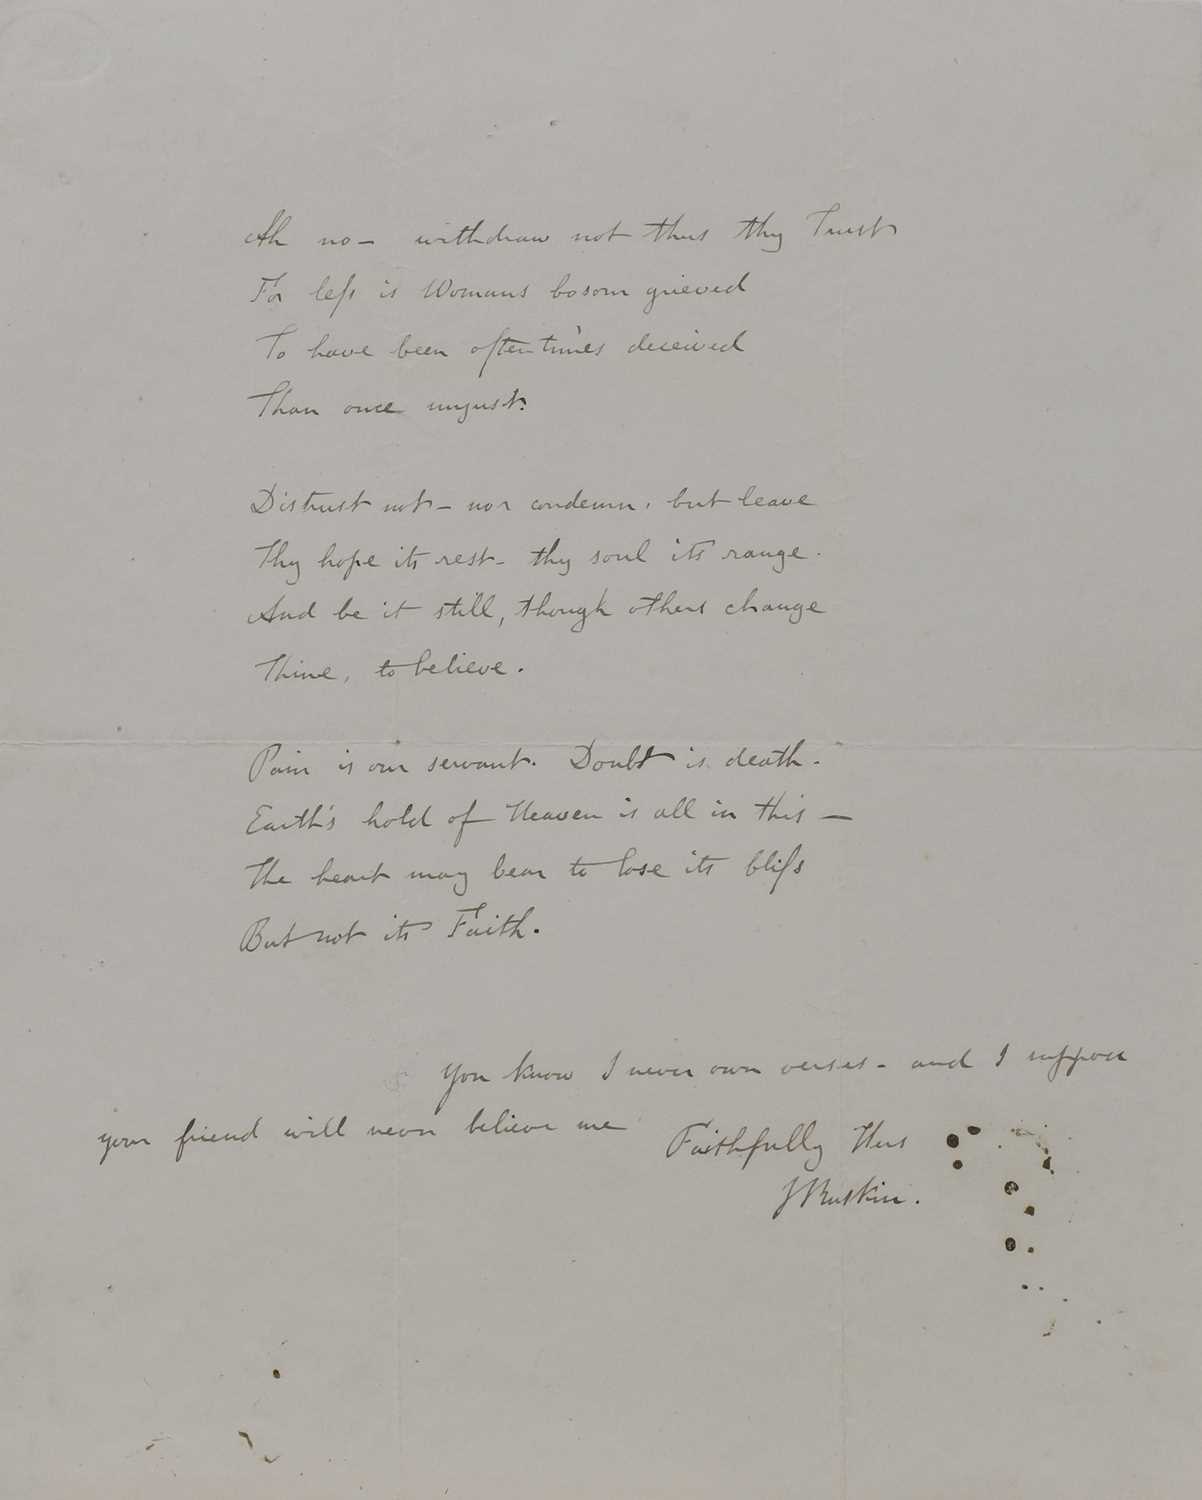 Ah no— withdraw not thus thy Trust
For leſs is Womans bosom grieved
To have been oftentimes deceived
Than once unjust.
Distrust not— nor condemn, but leave
Thy hope its rest— thy soul its range.
And be it still, though others change
Thine, to believe.
Pain is our servant. Doubt is death.
Earth's hold of Heaven is all in this —
The heart may bear to lose its bliſs
But not its Faith.
You know I never own verses— and I suppose
your friend will never believe me
Faithfully Thus
JRuskin.